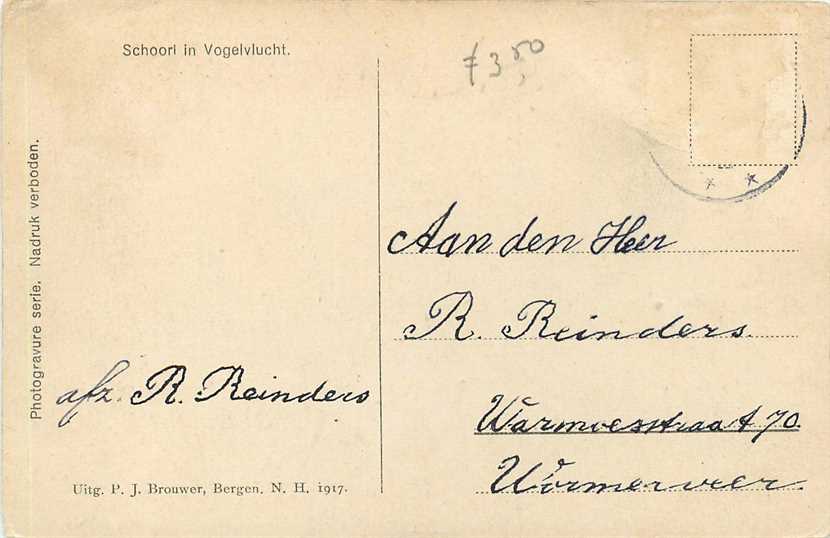 Schoorl in Vogelvlucht.
ƒ 3,50
Photogravure serie. Nadruk verboden.
Aan den Heer
R. Reinders
Warmoesstraat 70.
Wormerveer.
afz. R. Reinders
Uitg. P. J. Brouwer, Bergen. N. H. 1917.